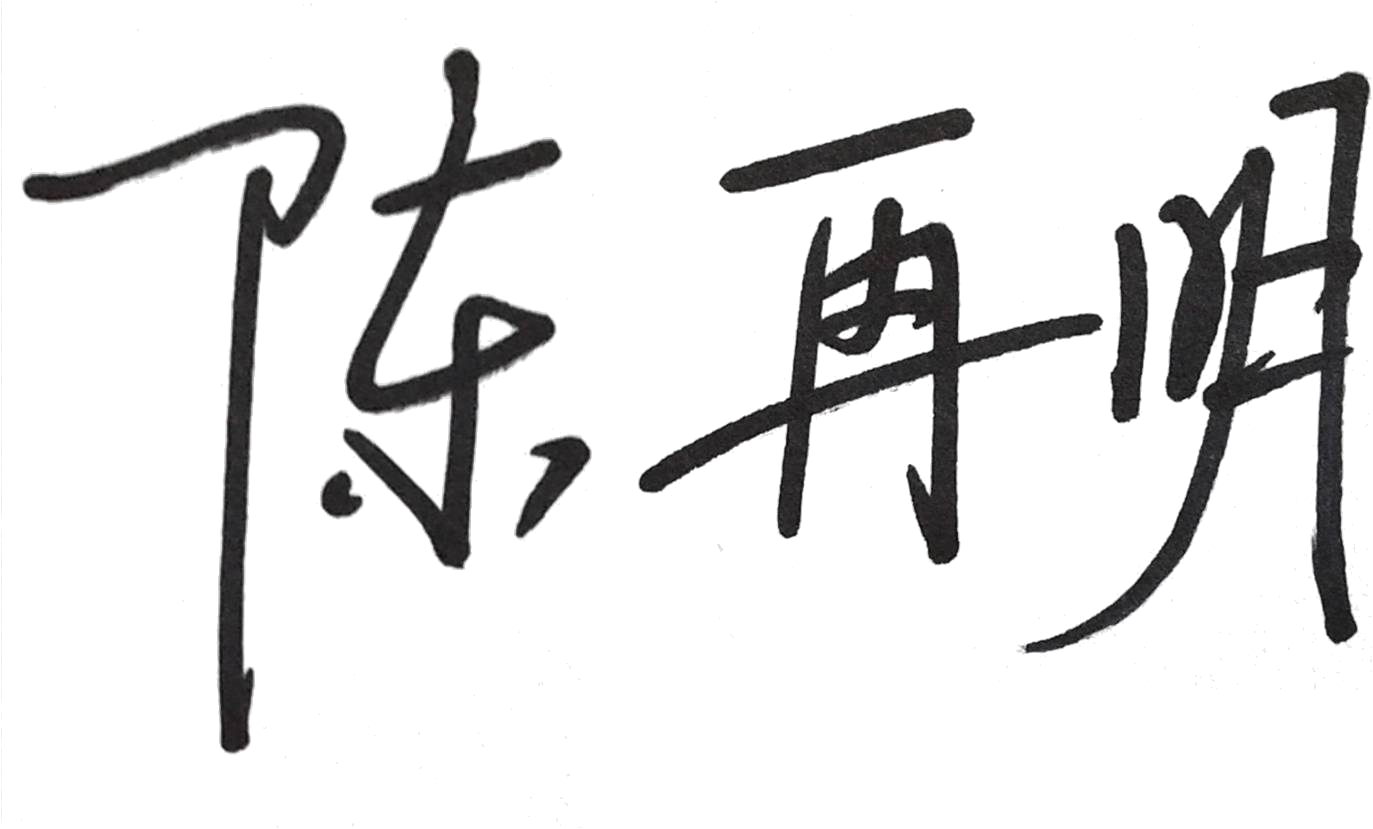 陈再明